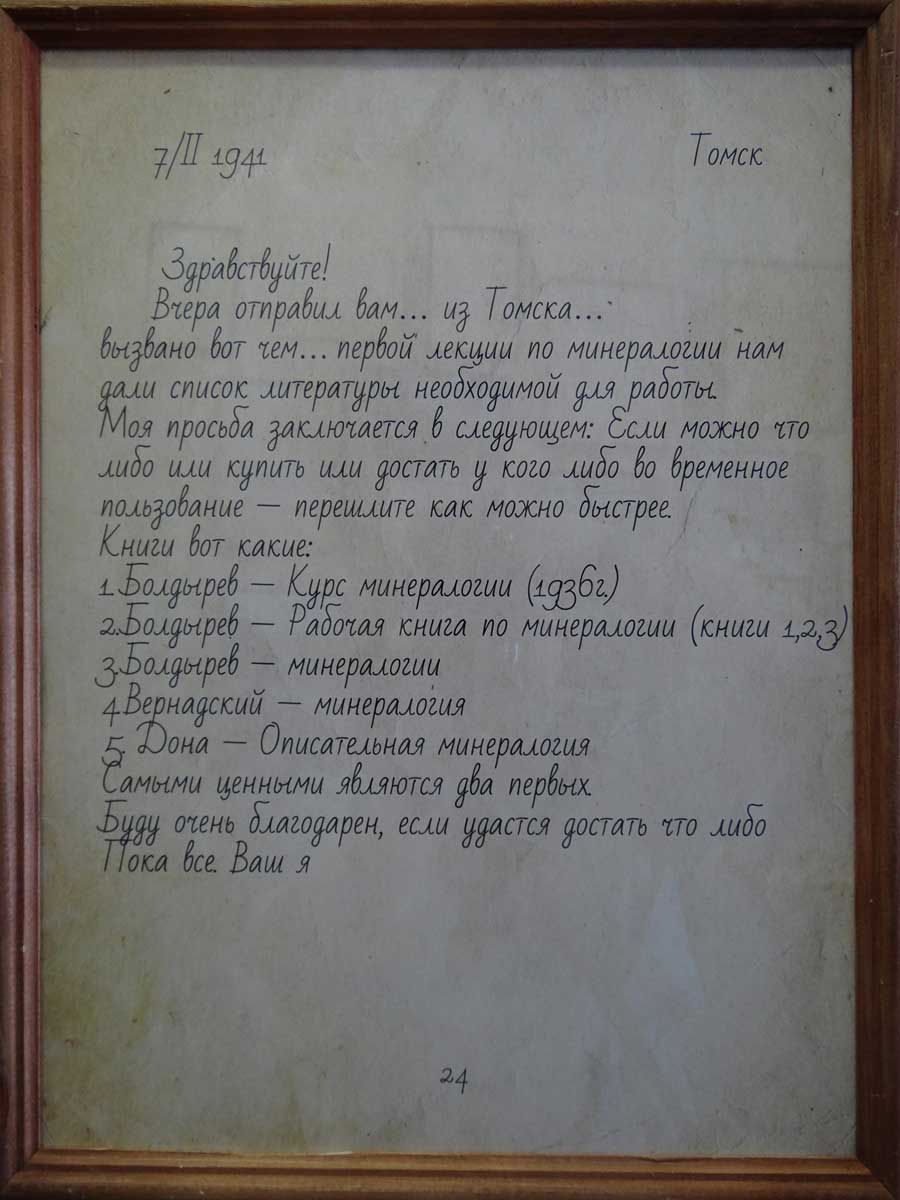 7/II 1941 Томск
Здравствуйте!
Вчера отправил вам... из Томска...
вызвано вот чем... первой лекции по минералогии нам
дали список литературы необходимой для работы.
Моя просьба заключается в следующем: Если можно что
либо или купить или достать у кого либо во временное
пользование — перешлите как можно быстрее.
Книги вот какие:
1.Болдырев — Курс минералогии (1936г.)
2.Болдырев — Рабочая книга по минералогии (книги 1,2,3)
3.Болдырев — минералогии
4.Вернадский — минералогия
5. Дона — Описательная минералогия
Самыми ценными являются два первых.
Буду очень благодарен, если удастся достать что либо
Пока все. Ваш я
24